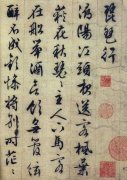 琵琶行
潯陽江頭夜送客楓葉
荻花秋瑟〻主人下馬客
在船舉酒欲飲無管絃
醉不成歡慘將別〻時茫